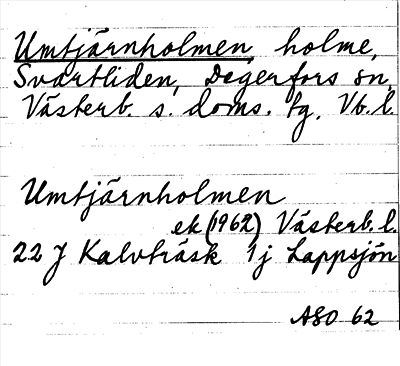 Umtjärnholmen, holme,
Svartliden, Degerfors sn,
Västerb. s. doms. tg, Vb. l.
Umtjärnholmen
ek (1962) Västerb. l.
22 J Kalvträsk 1 j Lappsjön
ASO 62